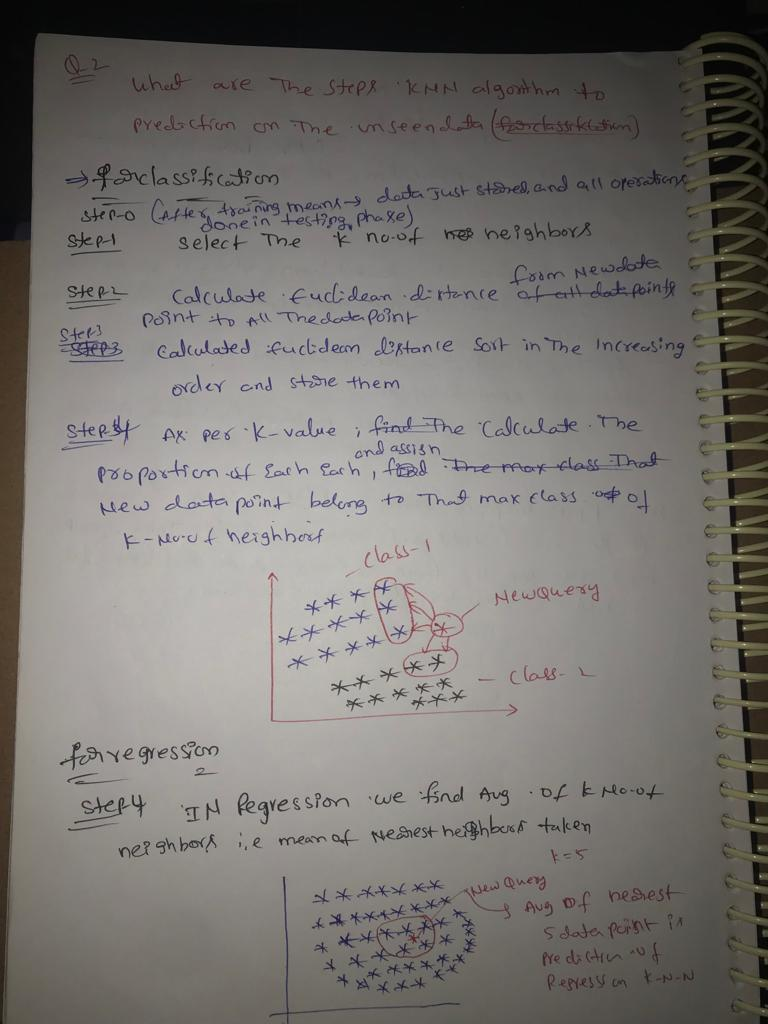 Q-2
What are The steps KNN algorithm to
prediction on The unseen data (for classification)
⇒ for classification
Step-0 (After training means → data just stored, and all operations
done in testing phase)
Step-1 select The k no.of neighbors
Step-2 Calculate Euclidean distance of all data points from New data
point to All The data point
Step3 Step-3 Calculated Euclidean distance Sort in The Increasing
order and store them
Step 4 As per K-value ; find The Calculate The
proportion of Each Each , find The max class That and assign
New data point belong to That max class of
K-No.of neighbors
class-1
New Query
class-2
for regression
Step 4 IN Regression we find Avg of k No.of
neighbors i,e mean of Nearest neighbors taken
k=5
New Query
Avg of nearest
5 data point is
prediction of
Regression K-N-N